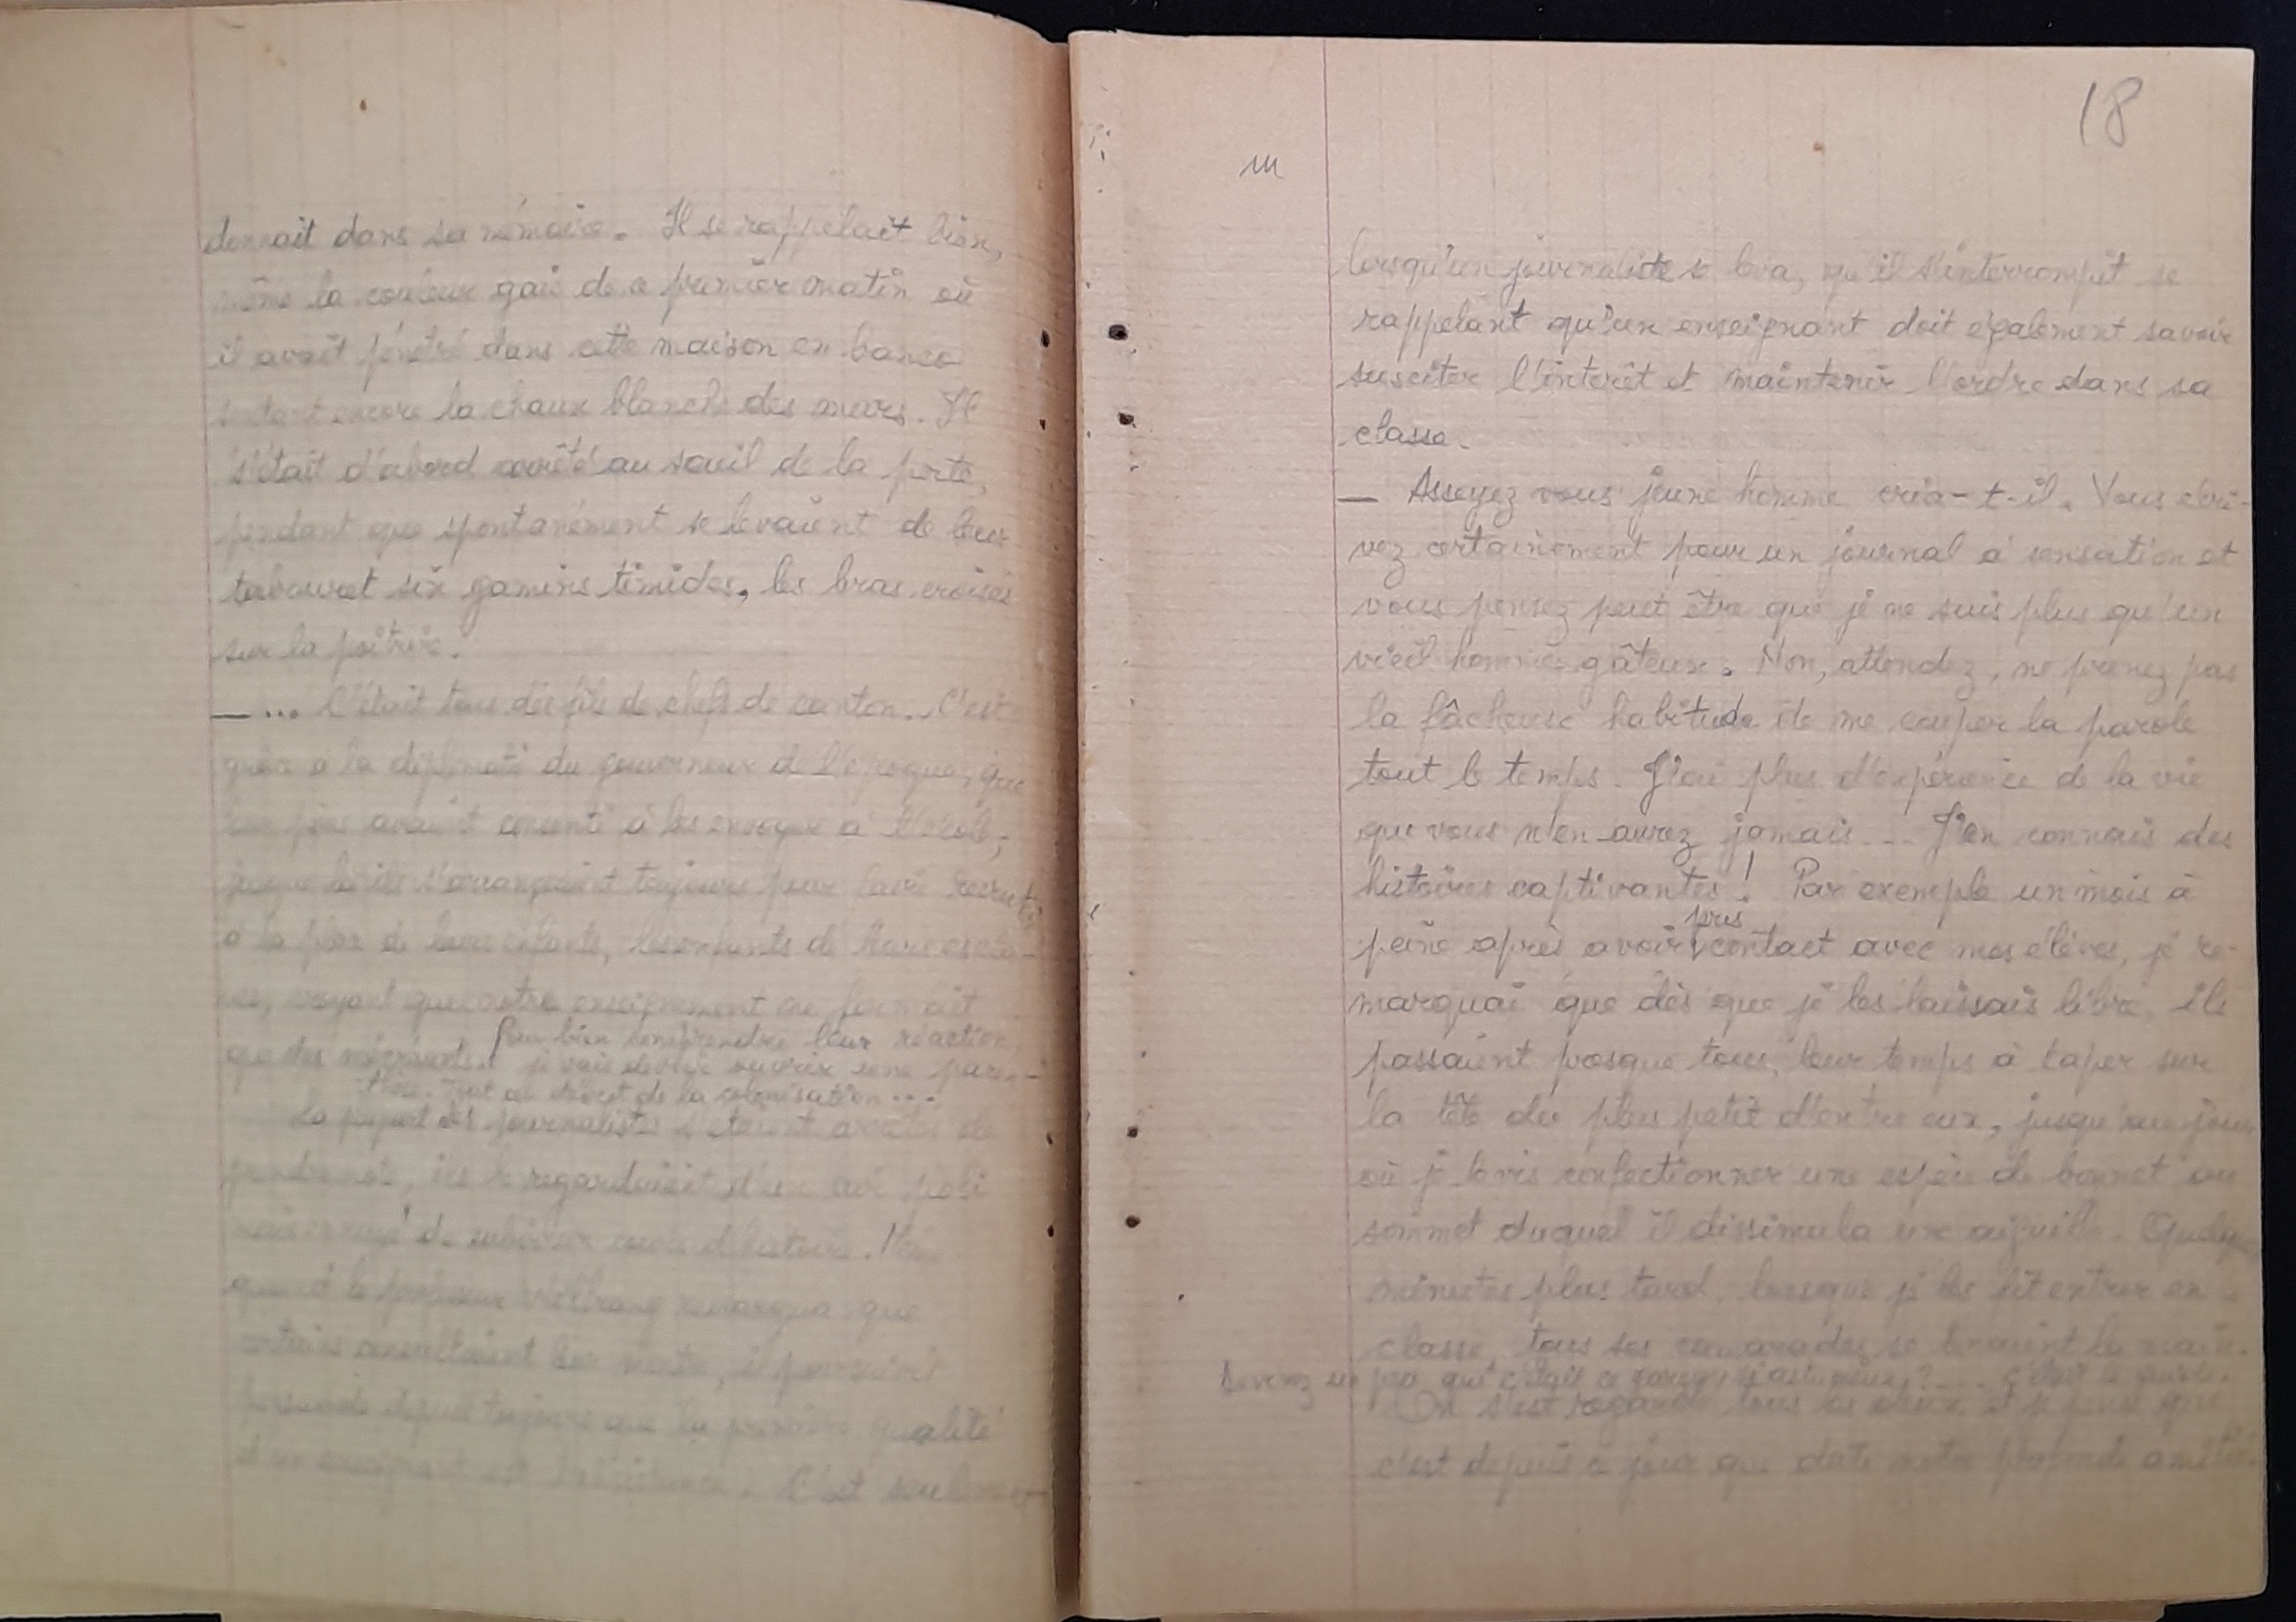 donnait dans sa mémoire. Il se rappelait bien,
même la couleur gaie de ce premier matin où
il avait pénétré dans cette maison en banco
sentant encore la chaux blanche des murs. Il
s'était d'abord arrêté au seuil de la porte,
pendant que spontanément se levaient de leur
tabouret six gamins timides, les bras croisés
sur la poitrine.
— ... C'était tous des fils de chefs de canton. C'est
grâce à la diplomatie du gouverneur de l'époque, que
leur père avaient consenti à les envoyer à l'école,
jusque là ils s'arrangeaient toujours pour faire recruter
à la place de leurs enfants, les enfants de leurs escla-
ves, croyant que notre enseignement ne formait
que des mécréants. Pour bien comprendre leur réaction,
je vais devoir ouvrir une paren-
thèse. Tout au début de la colonisation ...
La plupart des journalistes s'étaient arrêtés de
prendre note, ils le regardaient d'un air poli
mais ennuyé de subir un cours d'histoire. Mais
quand le professeur remarqua que
certains consultaient leur montre, il poursuivit
persuadé depuis toujours que la première qualité
d'un enseignant est . C'est seulement
18
m
lorsqu'un journaliste se leva, qu'il s'interrompit se
rappelant qu'un enseignant doit également savoir
susciter l'intérêt et maintenir l'ordre dans sa
classe.
— Asseyez vous jeune homme cria-t-il. Vous écri-
vez certainement pour un journal à sensation et
vous pensez peut être que je ne suis plus qu'un
vieil homme gâteux. Non, attendez, ne prenez pas
la fâcheuse habitude de me couper la parole
tout le temps. J'ai plus d'expérience de la vie
que vous n'en aurez jamais ... J'en connais des
histoires captivantes ! Par exemple un mois à
pris
peine après avoir contact avec mes élèves, je re-
marquai que dès que je les laissais libre, ils
passaient presque tous leur temps à taper sur
la tête du plus petit d'entre eux, jusqu'au jour
où je le vis confectionner une espèce de bonnet au
sommet duquel il dissimula une aiguille. Quelques
minutes plus tard, lorsque je les fit entrer en
classe, tous ses camarades se tenaient la main.
Devinez un peu qui c'était ce garçon si astucieux ? ...
On s'est regardé tous les deux et je pense que
c'est depuis ce jour que date notre profonde amitié.